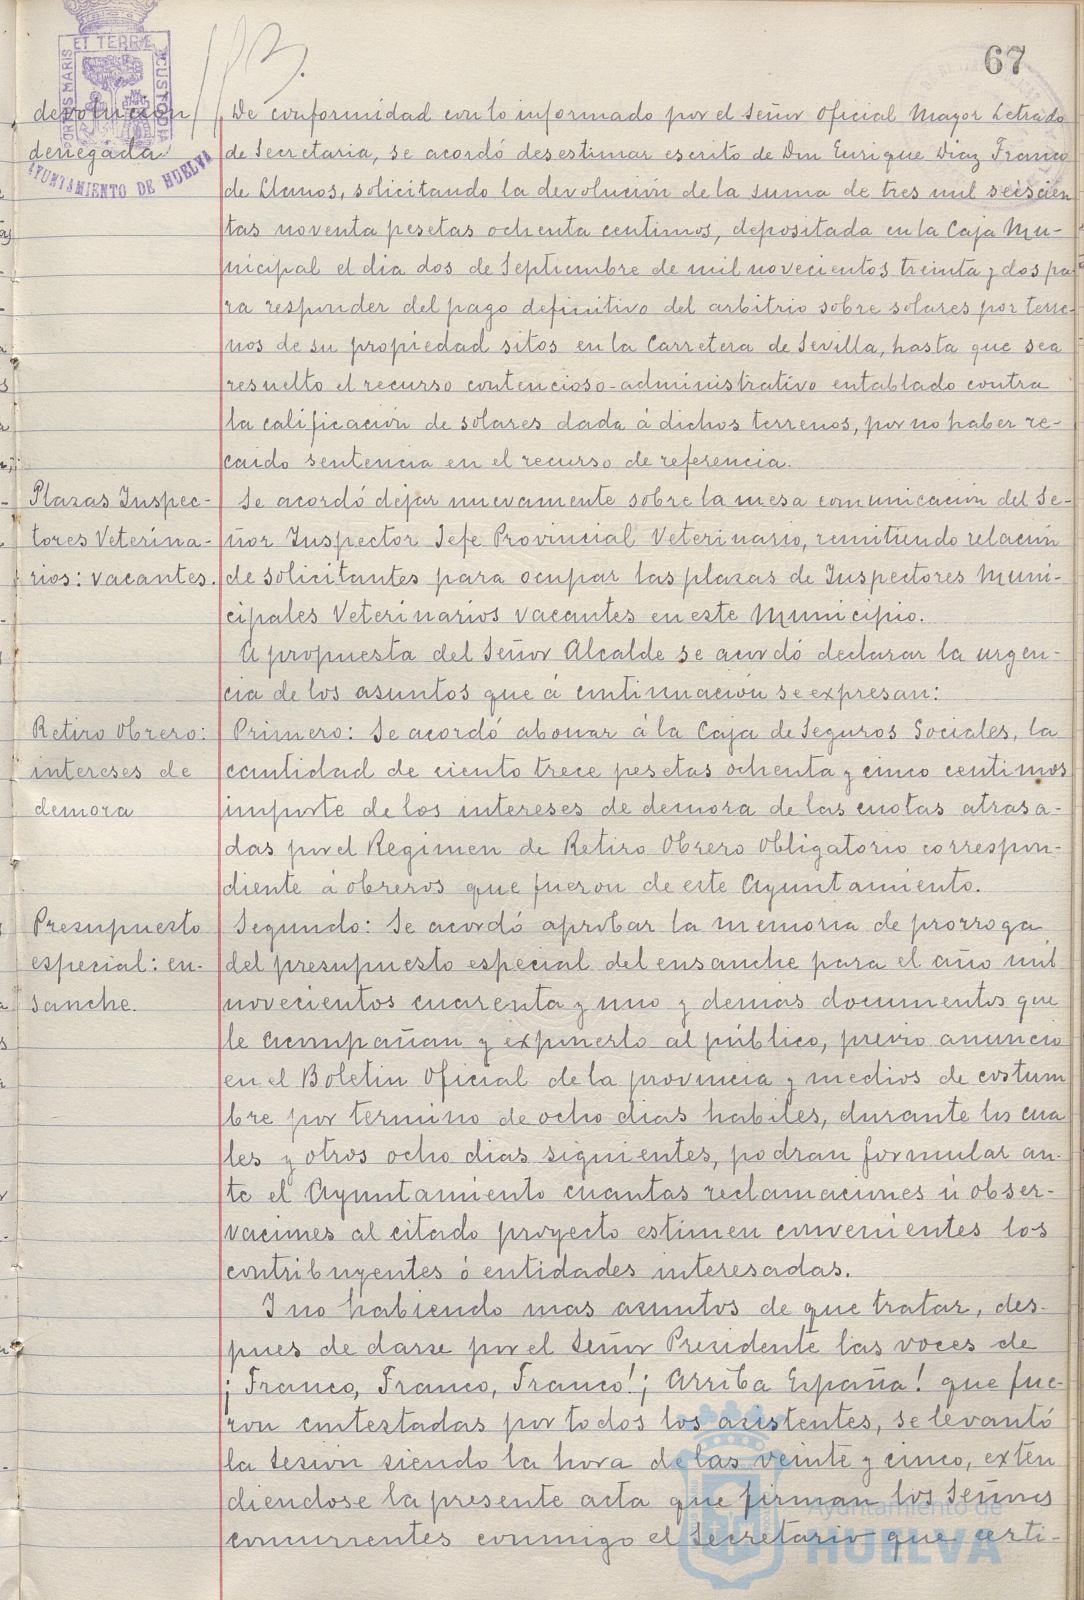 67
PORTUS MARIS ET TERRE CUSTODIA
AYUNTAMIENTO DE HUELVA
devolucion
denegada
De conformidad con lo informado por el Señor Oficial Mayor Letrado
de Secretaria, se acordó desestimar escrito de Don Enrique Diaz Franco
de Llanos, solicitando la devolución de la suma de tres mil seiscien
tas noventa pesetas ochenta centimos, depositada en la Caja Mu-
nicipal el dia dos de Septiembre de mil novecientos treinta y dos pa-
ra responder del pago definitivo del arbitrio sobre solares por terre-
nos de su propiedad sitos en la Carretera de Sevilla, hasta que sea
resuelto el recurso contencioso-administrativo entablado contra
la calificación de solares dada á dichos terrenos, por no haber re-
caido sentencia en el recurso de referencia.
Plazas Inspec-
tores Veterina-
rios: vacantes.
Se acordó dejar nuevamente sobre la mesa comunicación del Se-
ñor Inspector Jefe Provincial Veterinario, remitiendo relación
de solicitantes para ocupar las plazas de Inspectores Muni-
cipales Veterinarios vacantes en este Municipio.
A propuesta del Señor Alcalde se acordó declarar la urgen-
cia de los asuntos que á continuación se expresan:
Retiro Obrero:
intereses de
demora
Primero: Se acordó abonar á la Caja de Seguros Sociales, la
cantidad de ciento trece pesetas ochenta y cinco centimos
importe de los intereses de demora de las cuotas atrasa-
das por el Regimen de Retiro Obrero Obligatorio correspon-
diente á obreros que fueron de este Ayuntamiento.
Presupuesto
especial: en-
sanche.
Segundo: Se acordó aprobar la memoria de prorroga
del presupuesto especial del ensanche para el año mil
novecientos cuarenta y uno y demas documentos que
le acompañan y exponerlo al público, previo anuncio
en el Boletin Oficial de la provincia y medios de costum
bre por termino de ocho dias habiles, durante los cua
les y otros ocho dias siguientes, podran formular an-
te el Ayuntamiento cuantas reclamaciones ú obser-
vaciones al citado proyecto estimen convenientes los
contribuyentes ó entidades interesadas.
I no habiendo mas asuntos de que tratar, des-
pues de darse por el Señor Presidente las voces de
¡Franco, Franco, Franco! ¡Arriba España! que fue-
ron contestadas por todos los asistentes, se levantó
la sesion siendo la hora de las veinte y cinco, exten
diendose la presente acta que firman los Señores
concurrentes conmigo el Secretario que certi-
Ayuntamiento de
HUELVA